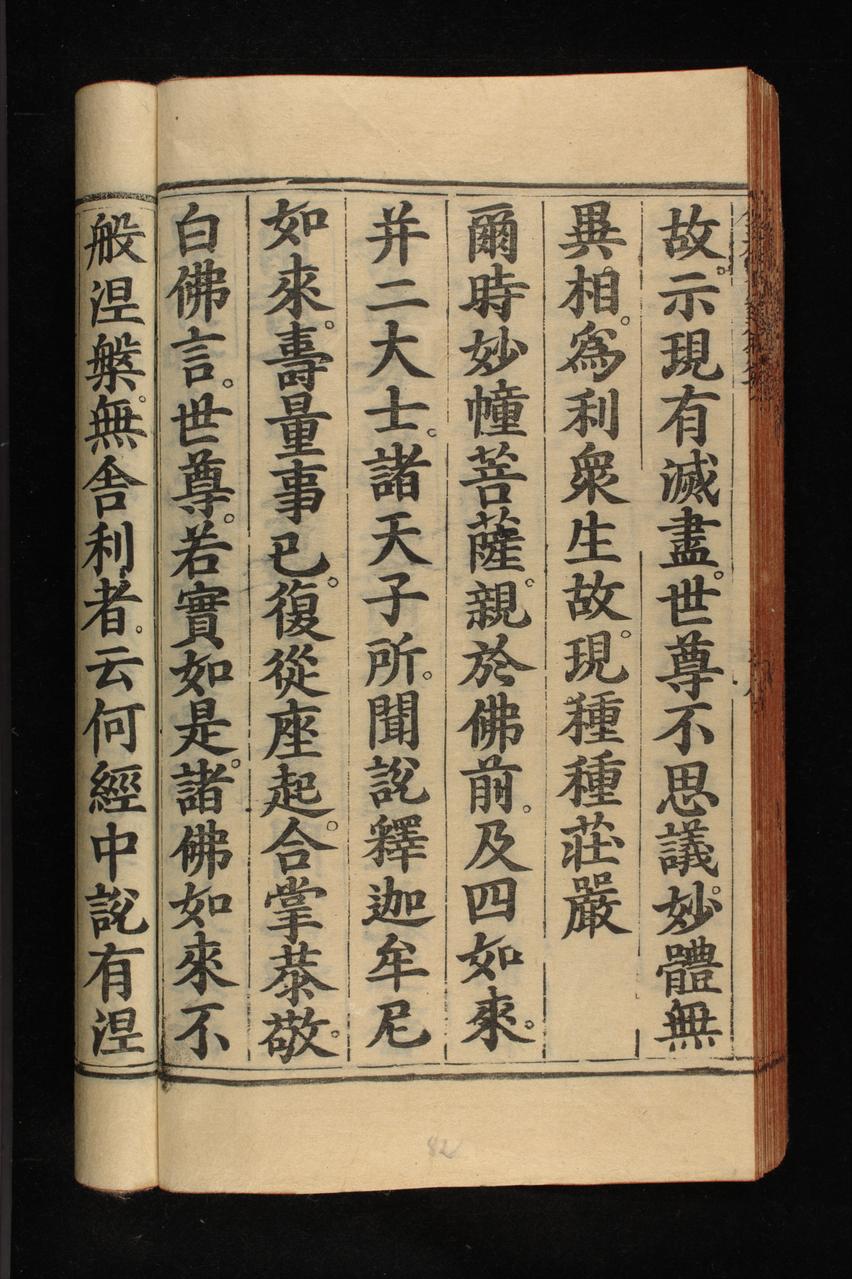 故。示現有滅盡。世尊不思議。妙體無
異相。為利衆生故。現種種莊嚴
爾時妙幢菩薩。親於佛前。及四如來。
并二大士。諸天子所。聞說釋迦牟尼
如來。壽量事已。復從座起。合掌恭敬。
白佛言。世尊。若實如是。諸佛如來不
般涅槃。無舍利者。云何經中說有涅
82